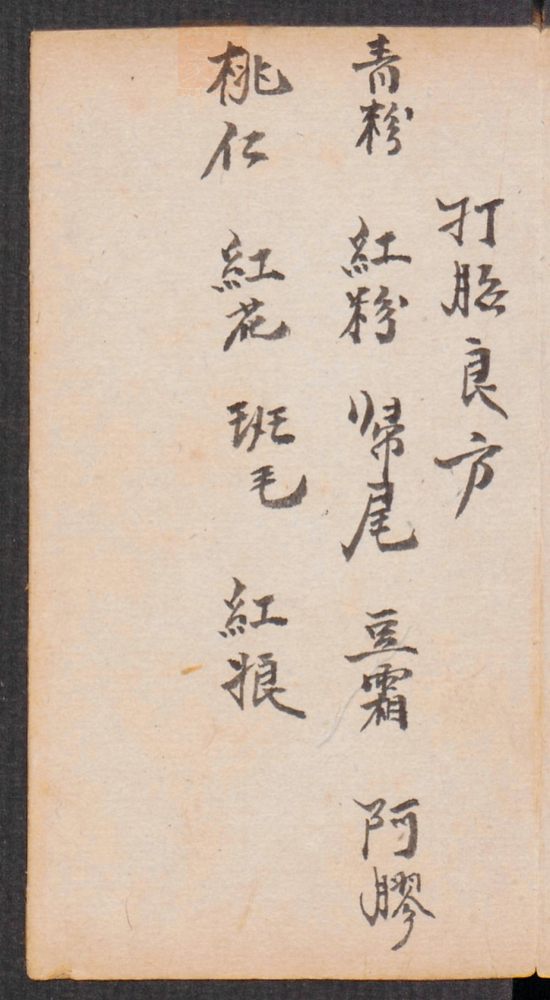 打胎良方
青粉 紅粉 帰尾 豆霜 阿膠
桃仁 紅花 班毛 紅狼